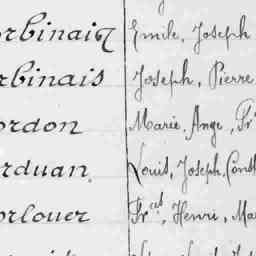 orbinais Emile, Joseph
rbinais Joseph, Pierre
ordon Marie, Ange, Fr
rduan Louis, Joseph, Const
orlouer Fr.çois, Henri, Ma